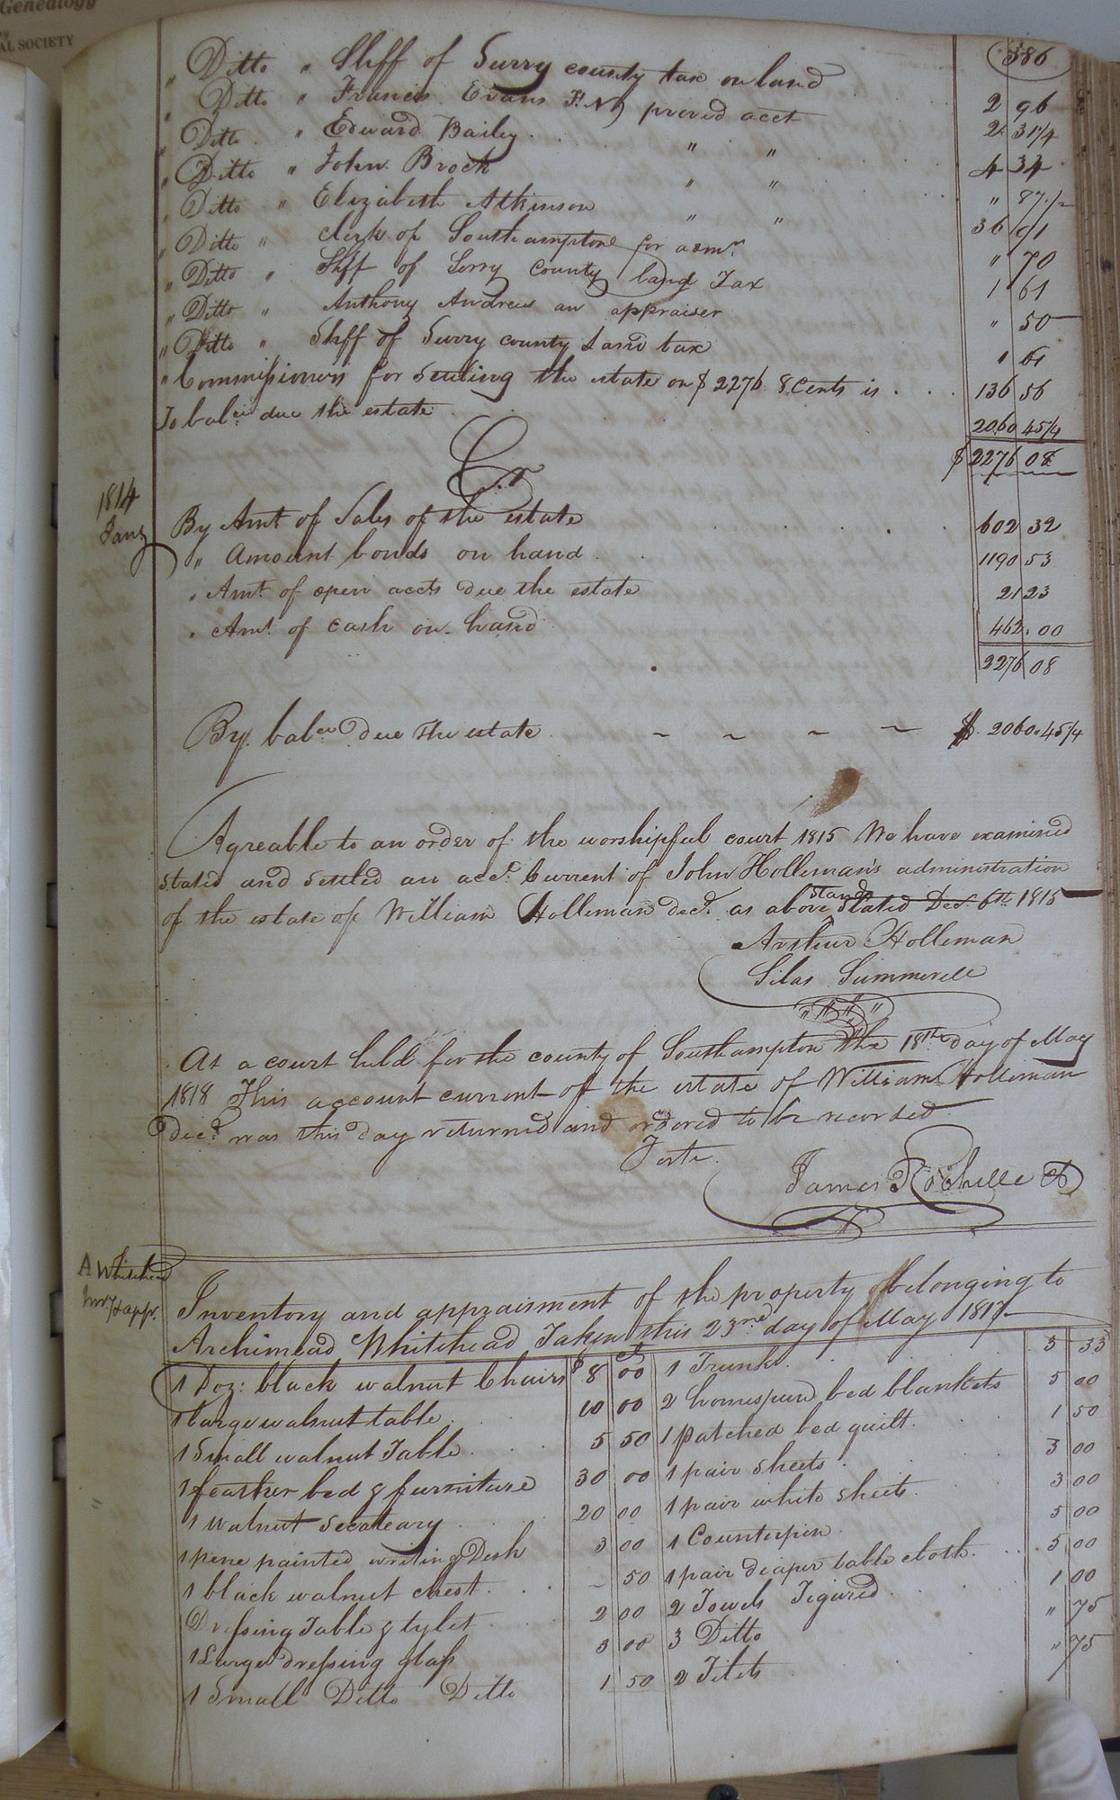 Genealogy
AL SOCIETY
386
" Ditto " Shff of Surry county tax on land 2 96
" Ditto " Francis Evans P. N) proved acct 2 31 1/4
" Ditto " Edward Bailey " " 4 34
" Ditto " John Brock " " " 87 1/2
" Ditto " Elizabeth Atkinson " " 36 91
" Ditto " Clerk of Southampton for a " 70
" Ditto " Shff of Surry County land Tax 1 61
" Ditto " Anthony Andrews an appraiser " 50
" Ditto " Shff of Surry county Land tax 1 61
" Commissioners for Settling the estate on $ 2276 8 Cents is 136 56
To balce due the estate 2060 45 1/4
$ 2276 08
Cr
1814
Jany
By Amt of Sales of the estate 602 32
" Amount bonds on hand 1190 53
" Amt of open accts due the estate 21 23
" Amt of cash on hand 462.00
2276 08
By balce due the estate ~ ~ ~ ~ $ 2060.45 1/4
Agreable to an order of the worshipful court 1815 We have examined
stated and settled an acct Current of John Holleman's administration
of the estate of William Holleman decd as above stands stated Dec 6th 1815
Arthur Holleman
Silas Summerell
At a court held for the county of Southampton the 18th day of May
1818 This account current of the estate of William Holleman
Decd was this day returned and ordered to be recorded
Teste
James Rochelle Cl
A Whitehead
Inv. & appr.
Inventory and appraisment of the property belonging to
Archimead Whitehead Taken this 23rd day of May 1817
1 Doz: black walnut Chairs $ 8 00 1 Trunk 3 33
1 large walnut table 10 00 2 homespun bed blankets 5 00
1 Small walnut Table 5 50 1 patched bed quilt 1 50
1 feather bed & furniture 30 00 1 pair sheets 3 00
1 walnut Secateary 20 00 1 pair white sheets 3 00
1 pine painted writing Desk 3 00 1 Counterpin 5 00
1 black walnut chest ~ 50 1 pair diaper table cloth 5 00
Dressing Table & tylet 2 00 2 Towels Figured 1 00
1 Large dressing glass 3 00 3 Ditto " 75
1 Small Ditto Ditto 1 50 2 Tilets " 75